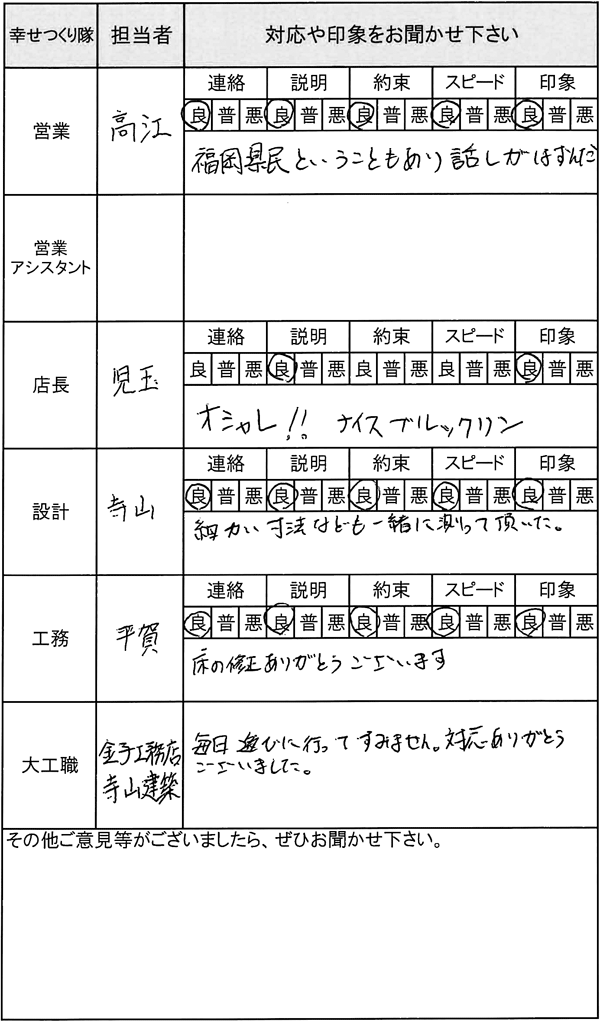 幸せつくり隊 担当者 対応や印象をお聞かせ下さい
営業 高江
連絡 説明 約束 スピード 印象
良 普 悪 良 普 悪 良 普 悪 良 普 悪 良 普 悪
福岡県民ということもあり話しがはずんだ
営業
アシスタント
店長 児玉
連絡 説明 約束 スピード 印象
良 普 悪 良 普 悪 良 普 悪 良 普 悪 良 普 悪
オシャレ!! ナイスブルックリン
設計 寺山
連絡 説明 約束 スピード 印象
良 普 悪 良 普 悪 良 普 悪 良 普 悪 良 普 悪
細かい寸法なども一緒に測って頂いた。
工務 平賀
連絡 説明 約束 スピード 印象
良 普 悪 良 普 悪 良 普 悪 良 普 悪 良 普 悪
床の修正ありがとうございます
大工職 金子工務店
寺山建築
毎日遊びに行ってすみません。対応ありがとう
ございました。
その他ご意見等がございましたら、ぜひお聞かせ下さい。